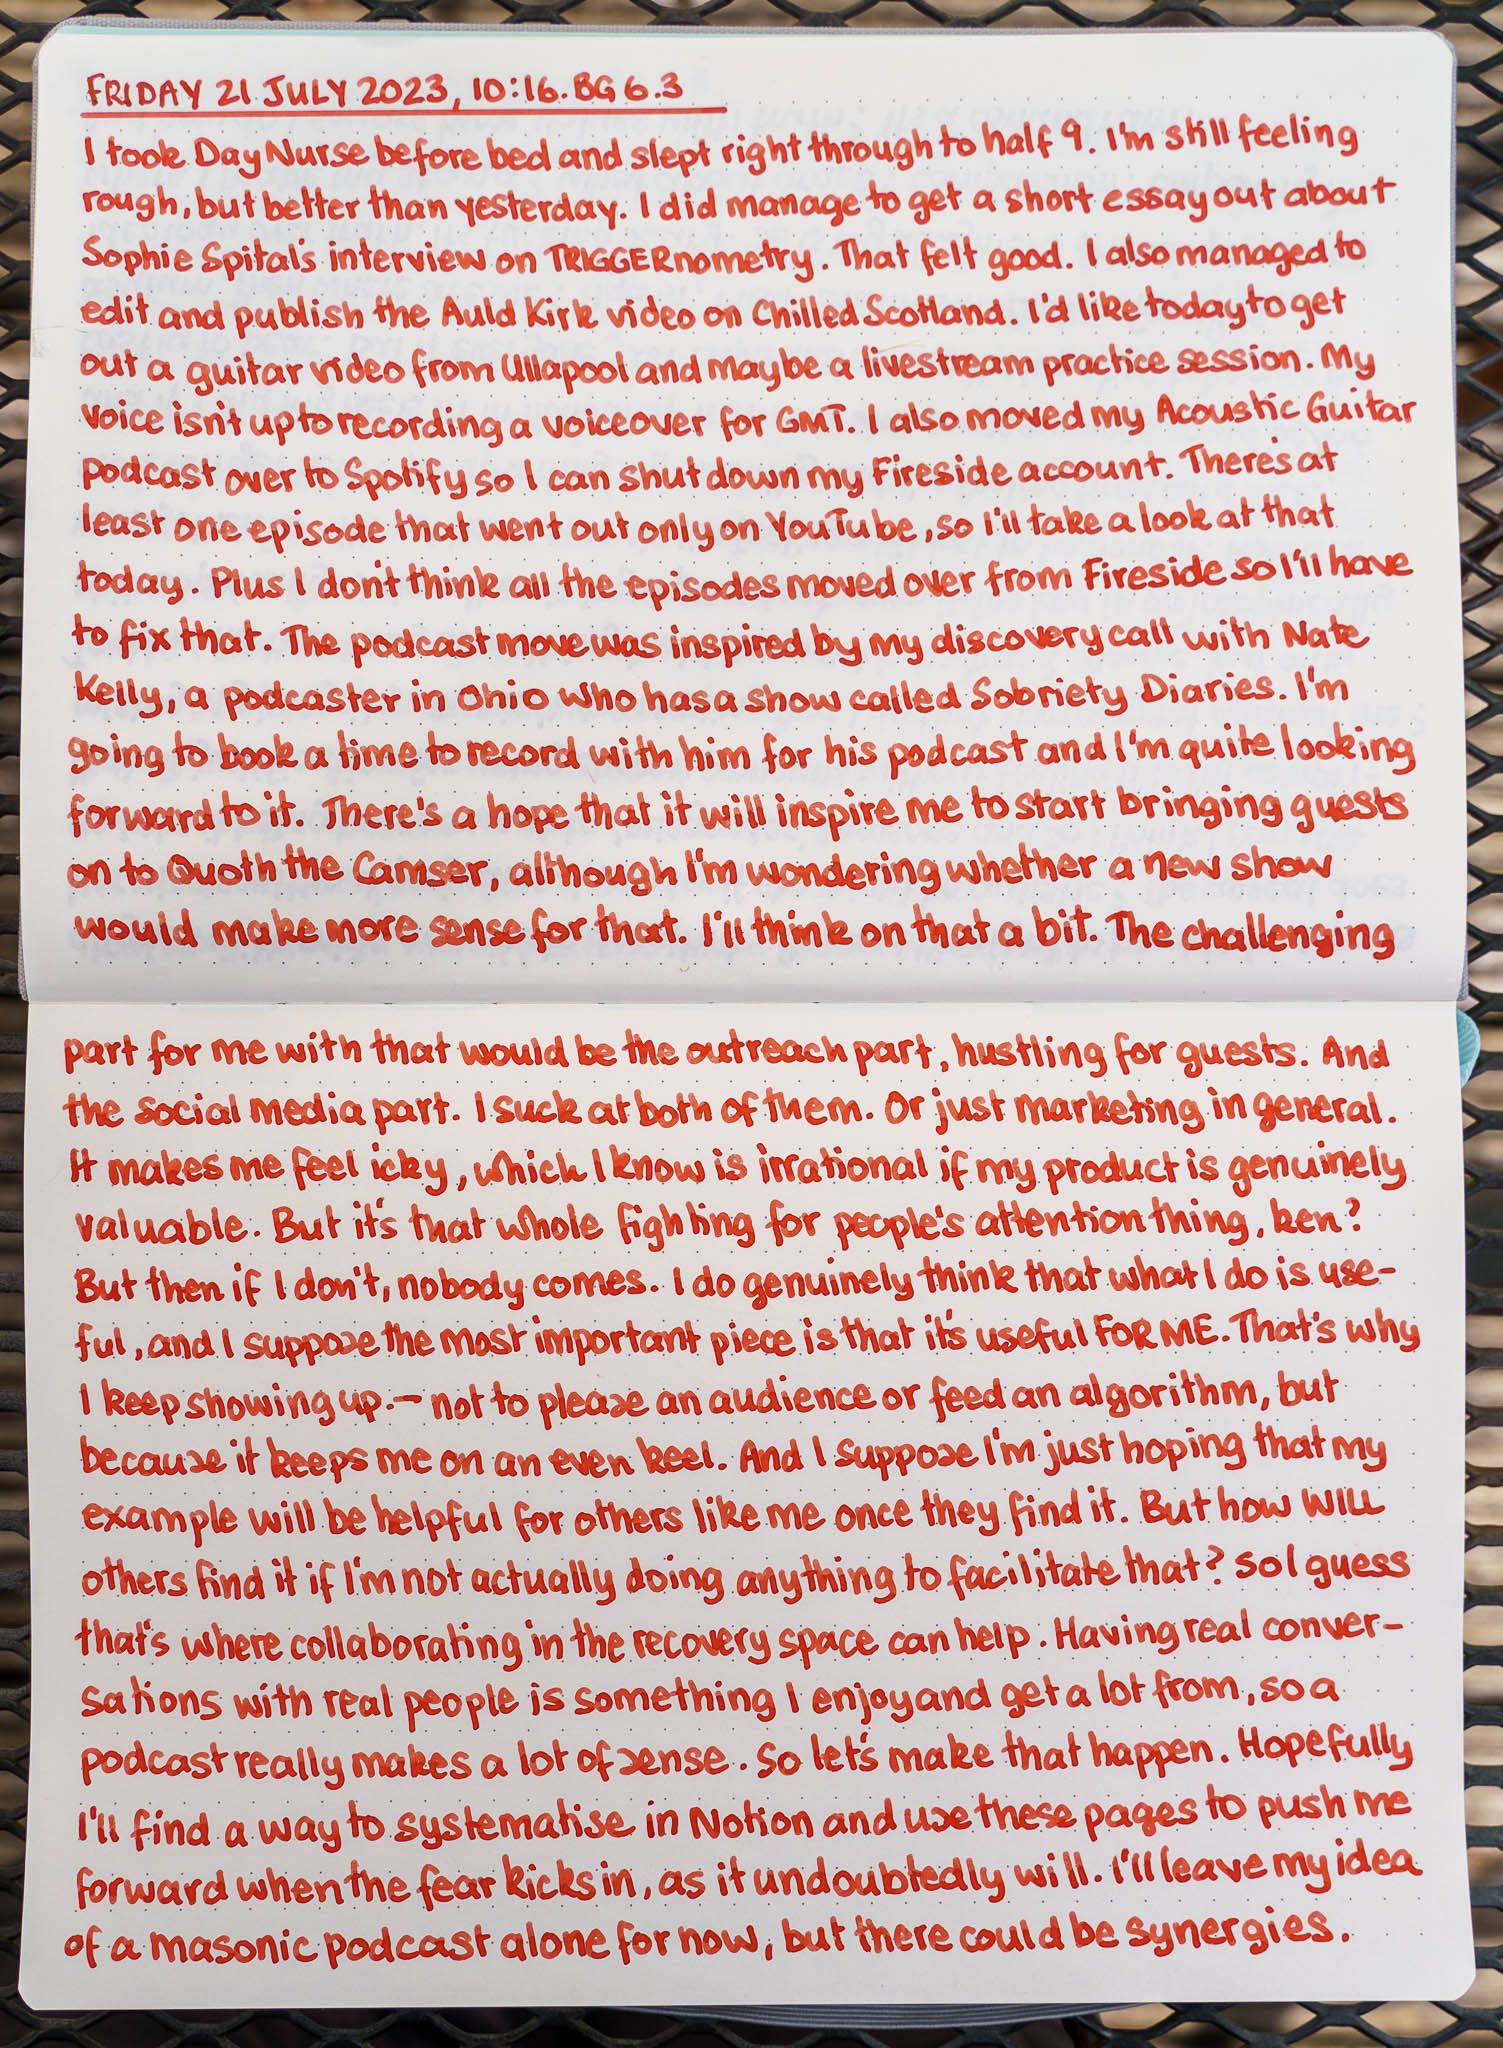 FRIDAY 21 JULY 2023, 10:16. BG 6.3
I took Day Nurse before bed and slept right through to half 9. I'm still feeling
rough, but better than yesterday. I did manage to get a short essay out about
Sophie Spital's interview on TRIGGERnometry. That felt good. I also managed to
edit and publish the Auld Kirk video on Chilled Scotland. I'd like today to get
out a guitar video from Ullapool and maybe a livestream practice session. My
voice isn't up to recording a voiceover for GMT. I also moved my Acoustic Guitar
Podcast over to Spotify so I can shut down my Fireside account. There's at
least one episode that went out only on YouTube, so I'll take a look at that
today. Plus I don't think all the episodes moved over from Fireside so I'll have
to fix that. The podcast move was inspired by my discovery call with Nate
Kelly, a podcaster in Ohio who has a show called Sobriety Diaries. I'm
going to book a time to record with him for his podcast and I'm quite looking
forward to it. There's a hope that it will inspire me to start bringing guests
on to Quoth the Camser, although I'm wondering whether a new show
would make more sense for that. I'll think on that a bit. The challenging
part for me with that would be the outreach part, hustling for guests. And
the social media part. I suck at both of them. Or just marketing in general.
It makes me feel icky, which I know is irrational if my product is genuinely
valuable. But it's that whole fighting for people's attention thing, ken?
But then if I don't, nobody comes. I do genuinely think that what I do is use-
ful, and I suppose the most important piece is that it's useful FOR ME. That's why
I keep showing up. — not to please an audience or feed an algorithm, but
because it keeps me on an even keel. And I suppose I'm just hoping that my
example will be helpful for others like me once they find it. But how WILL
others find it if I'm not actually doing anything to facilitate that? So I guess
that's where collaborating in the recovery space can help. Having real conver-
sations with real people is something I enjoy and get a lot from, so a
podcast really makes a lot of sense. So let's make that happen. Hopefully
I'll find a way to systematise in Notion and use these pages to push me
forward when the fear kicks in, as it undoubtedly will. I'll leave my idea
of a masonic podcast alone for now, but there could be synergies.